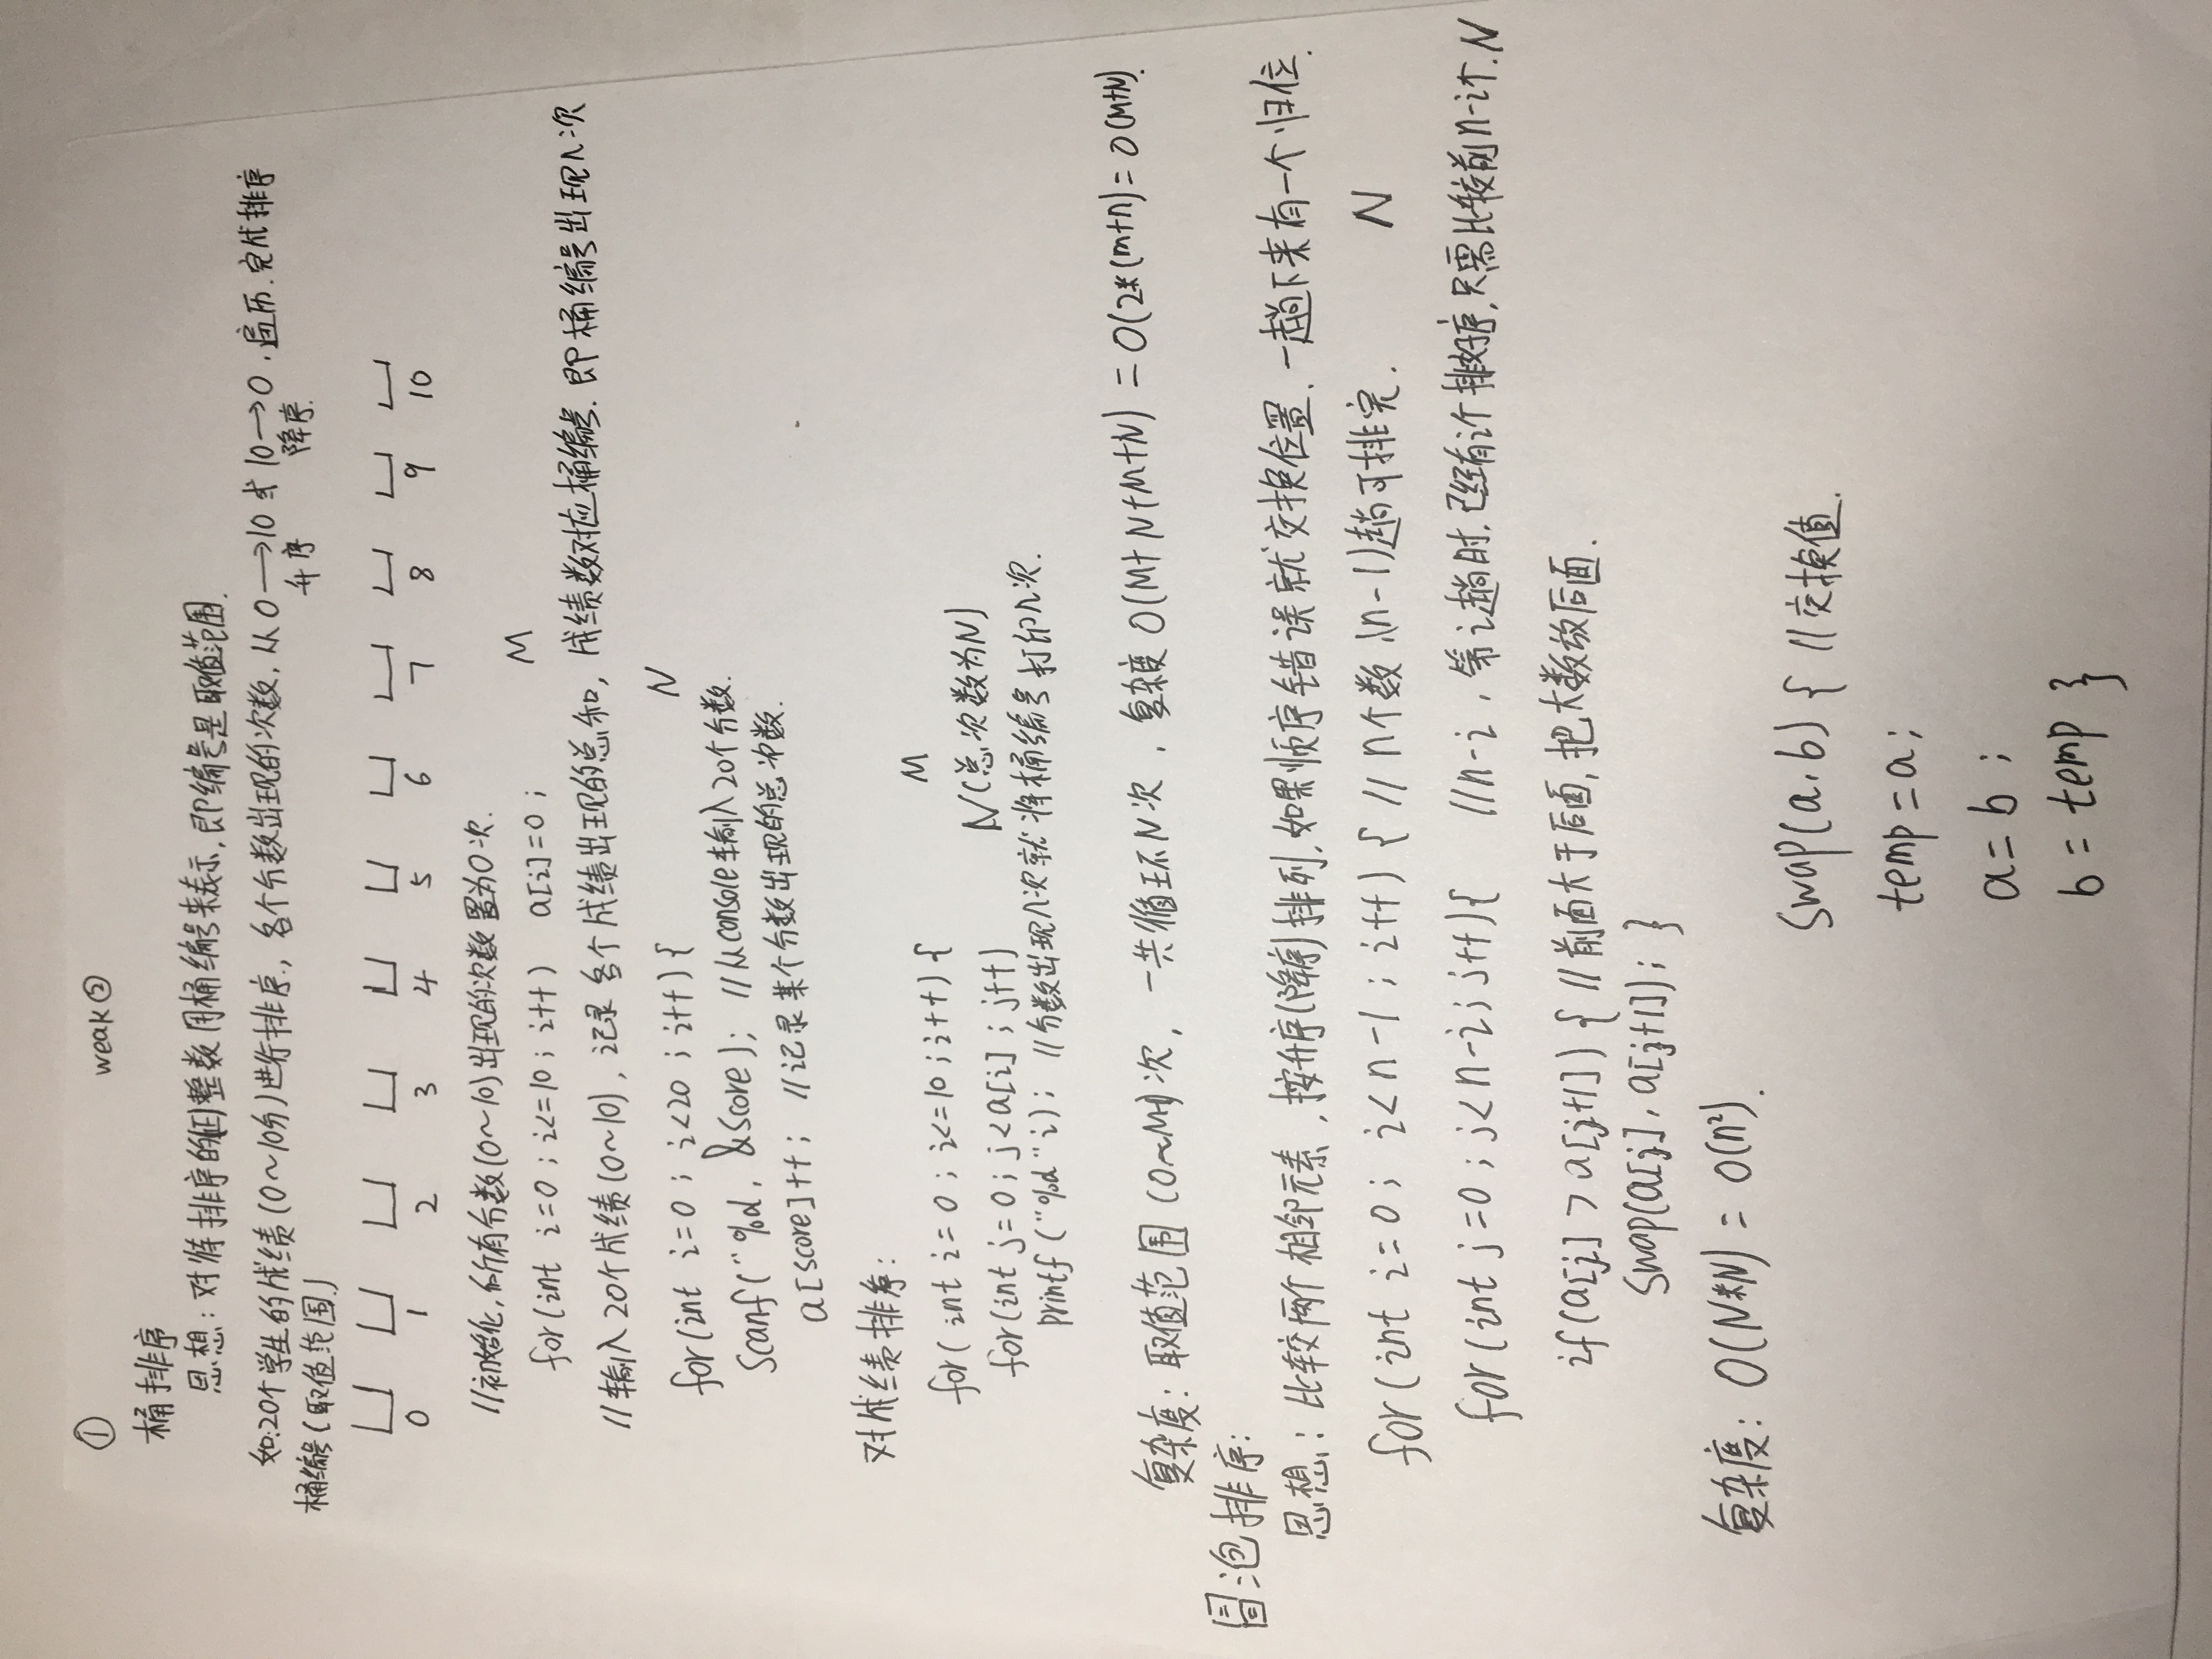 ① weak②
桶排序
思想：对待排序的(正)整数用桶编号来表示，即编号是取值范围.
如:20个学生的成绩(0～10分)进行排序，各个分数出现的次数，从0→10或10→0，遍历.完成排序
升序 降序.
桶编号(取值范围)
0 1 2 3 4 5 6 7 8 9 10
//初始化,所有分数(0～10)出现的次数置为0次.
for(int i=0 ; i<=10 ; i++) a[i]=0 ; M
//输入20个成绩(0～10)，记录各个成绩出现的总和，成绩数对应桶编号.即桶编号出现几次
for(int i=0 ; i<20 ; i++){ N
Scanf("%d, &Score); //从console输入20个分数.
a[score]++; //记录某个分数出现的总次数.
对成绩排序:
for( int i=0 ; i<=10 ; i++){ M
for(int j=0 ; j<a[i] ; j++) N(总次数为N)
printf("%d"i); //分数出现几次就将桶编号打印几次.
复杂度：取值范围(0~M)次，一共循环N次，复杂度O(M+N+M+N)=O(2*(m+n)=O(M+N).
冒泡排序:
思想：比较两个相邻元素，按升序(降序)排列.如果顺序错误就交换位置.一趟下来有一个归位.
for(int i=0; i<n-1 ; i++) { //n个数,(n-1)趟可排完. N
for(int j=0 ; j<n-i; j++){ //n-i，第i趟时.已经有i个排好序,只需比较前n-i个.N
if(a[j] > a[j+1]) { //前面大于后面,把大数放后面.
Swap(a[j], a[j+1]); }
复杂度: O(N*N) = O(n²).
Swap(a,b) { //交换值.
temp=a;
a=b ;
b=temp }